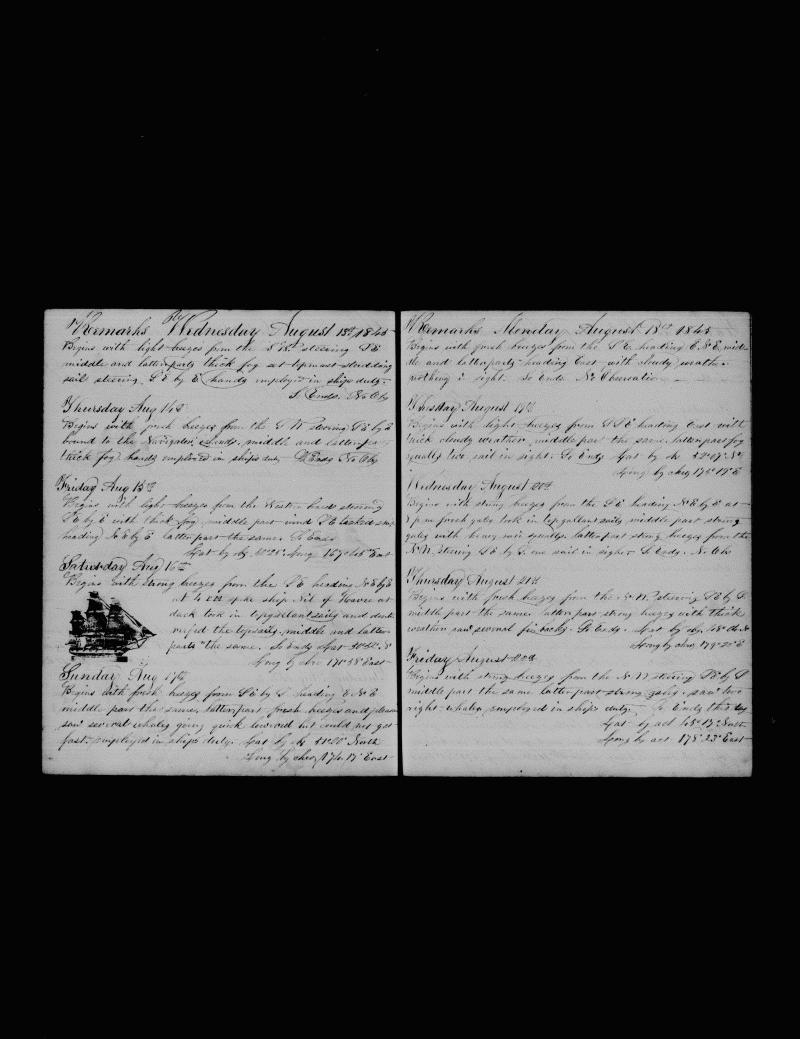 Remarks Wednesday August 13th 1845
Begins with light breezes from the steering SE
middle and latter parts thick fog set topmast studding
sail steering SE by E hands employed in ships duty
So Ends No Obs
Thursday Aug 14th
Begins with fresh breezes from the steering SE by E
bound to the middle and latter part
thick fog hands employed in ships duty So Ends No Obs
Friday Aug 15th
Begins with light breezes from the Wester board steering
SE by E with thick fog middle part wind SE tacked ship
heading NE by E latter part the same So Ends
Lat by Long 167 45 East
Saturday Aug 16th
Begins with strong breezes from the SE heading NE by E
at 4 the ship Nil of Havre at
dark took in topgallant sails and double
reefed the topsails middle and latter
parts the same So Ends Lat
Long by chro 170 58 East
Sunday Aug 17th
Begins with fresh breezes from SE by S heading E N E
middle part the same latter part fresh breezes and pleasant
saw several whales going quick lowered but could not get
fast employed in ships duty Lat by North
Long by chro 174 17 East
Remarks Monday August 18th 1845
Begins with fresh breezes from the SE heading E N E mid-
dle and latter parts heading East with cloudy weather
nothing in sight So Ends No Observation
Tuesday August 19th
Begins with light breezes from SSE heading East with
thick cloudy weather middle part the same latter part fog
squally two sail in sight So Ends Lat by
Long by chro 175 19 E
Wednesday August 20th
Begins with strong breezes from the SE heading NE by E at
7 pm fresh gales took in topgallant sails middle part strong
gales with heavy squalls latter part strong breezes from the
NW steering SE by S one sail in sight So Ends No Obs
Thursday August 21st
Begins with fresh breezes from the NW steering SE by S
middle part the same latter part strong breezes with thick
weather saw several finbacks So Ends Lat by
Long by chro 179 20 E
Friday August 22d
Begins with strong breezes from the NW steering SE by S
middle part the same latter part strong gales saw two
right whales employed in ships duty So Ends this day
Lat by act 48 17 North
Long by act 178 23 East